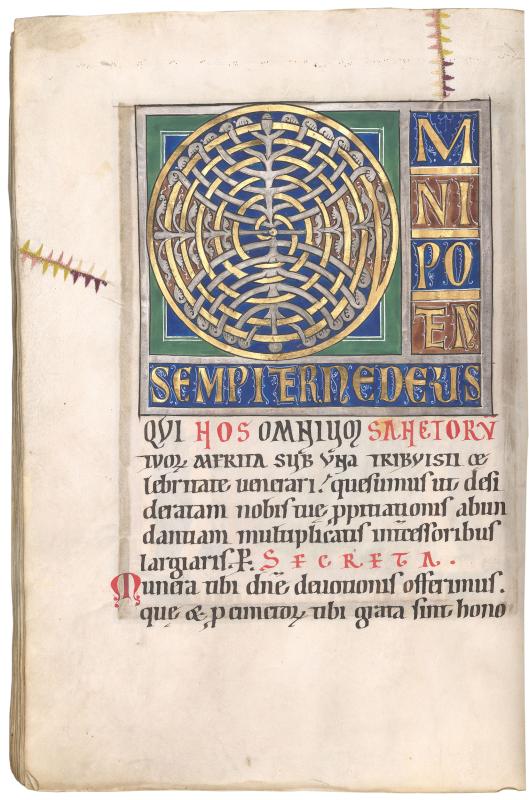 O
M
NI
PO
TENS
SEMPITERNEDEUS
QVI HOS OMNIUM SANCTORŪ
TVOꝜ MERITA SVB VNA TRIBVISTI CE
lebritate uenerari. quesumus ut desi
deratam nobis tuę ꝓpitiationis abun
dantiam multiplicatis intercessoribus
largiaris. P. SECRETA.
Munera tibi dn̄e deuotionis offerimus.
quę & ꝓ cunctoꝝ tibi grata sint hono